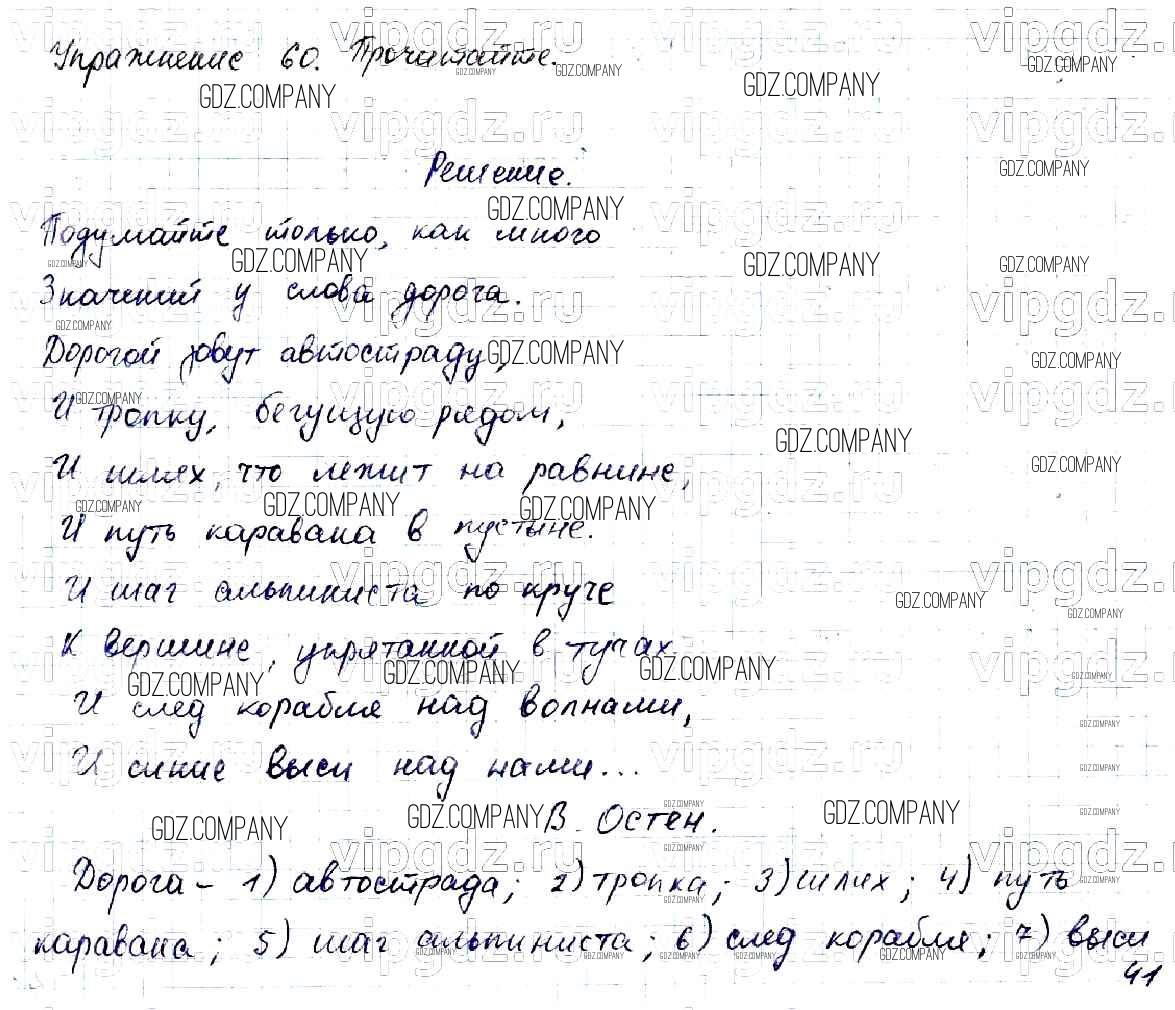 Упражнение 60. Прочитайте.
Решение.
Подумайте только, как много
Значений у слова дорога.
Дорогой зовут автостраду,
И тропку, бегущую рядом,
И шлях, что лежит на равнине,
И путь каравана в пустыне.
И шаг альпиниста по круче
К вершине, упрятанной в тучах
И след корабля над волнами,
И синие выси над нами...
В. Остен.
Дорога – 1) автострада; 2) тропка; 3) шлях; 4) путь
каравана; 5) шаг альпиниста; 6) след корабля; 7) выси
41
vipgdz.ru
GDZ.COMPANY